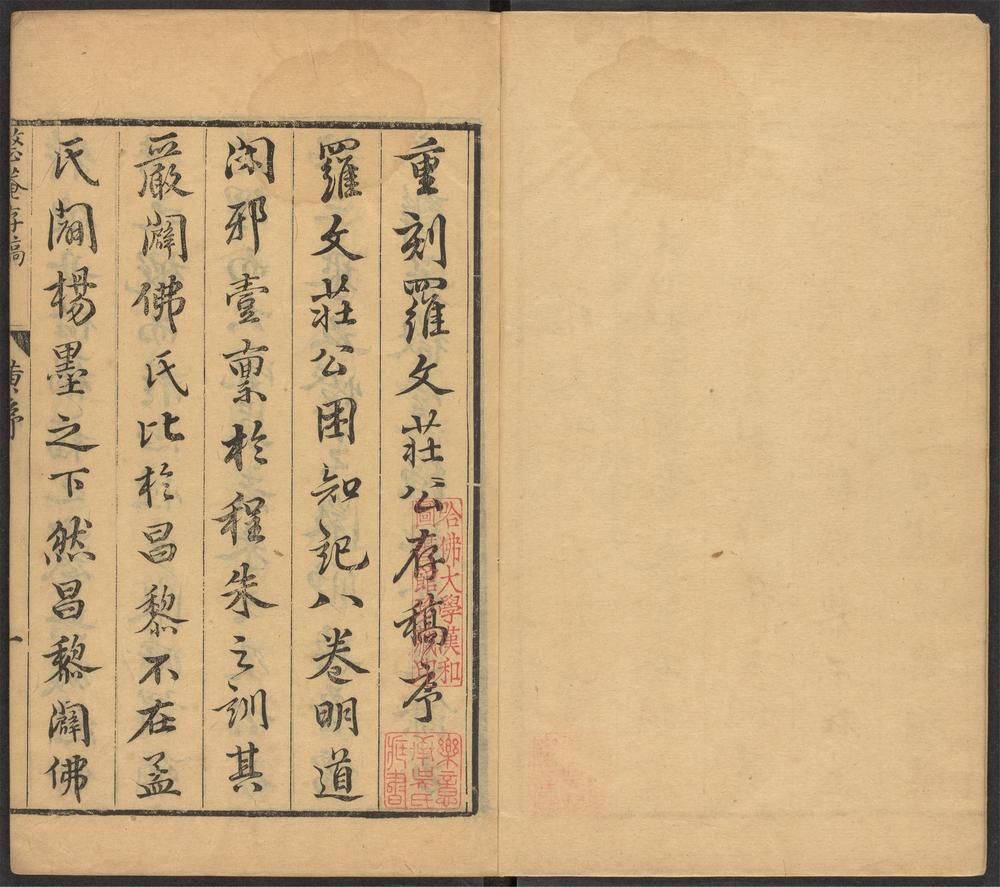 重刻羅文莊公存稿序
羅文莊公困知記八卷明道
閑邪壹稟於程朱之訓其
嚴闢佛氏比於昌黎不在孟
氏闢楊墨之下然昌黎闢佛
整菴存稿
黃序
一
哈佛大學漢和
圖書館藏印
樂意
軒吳氏
藏書